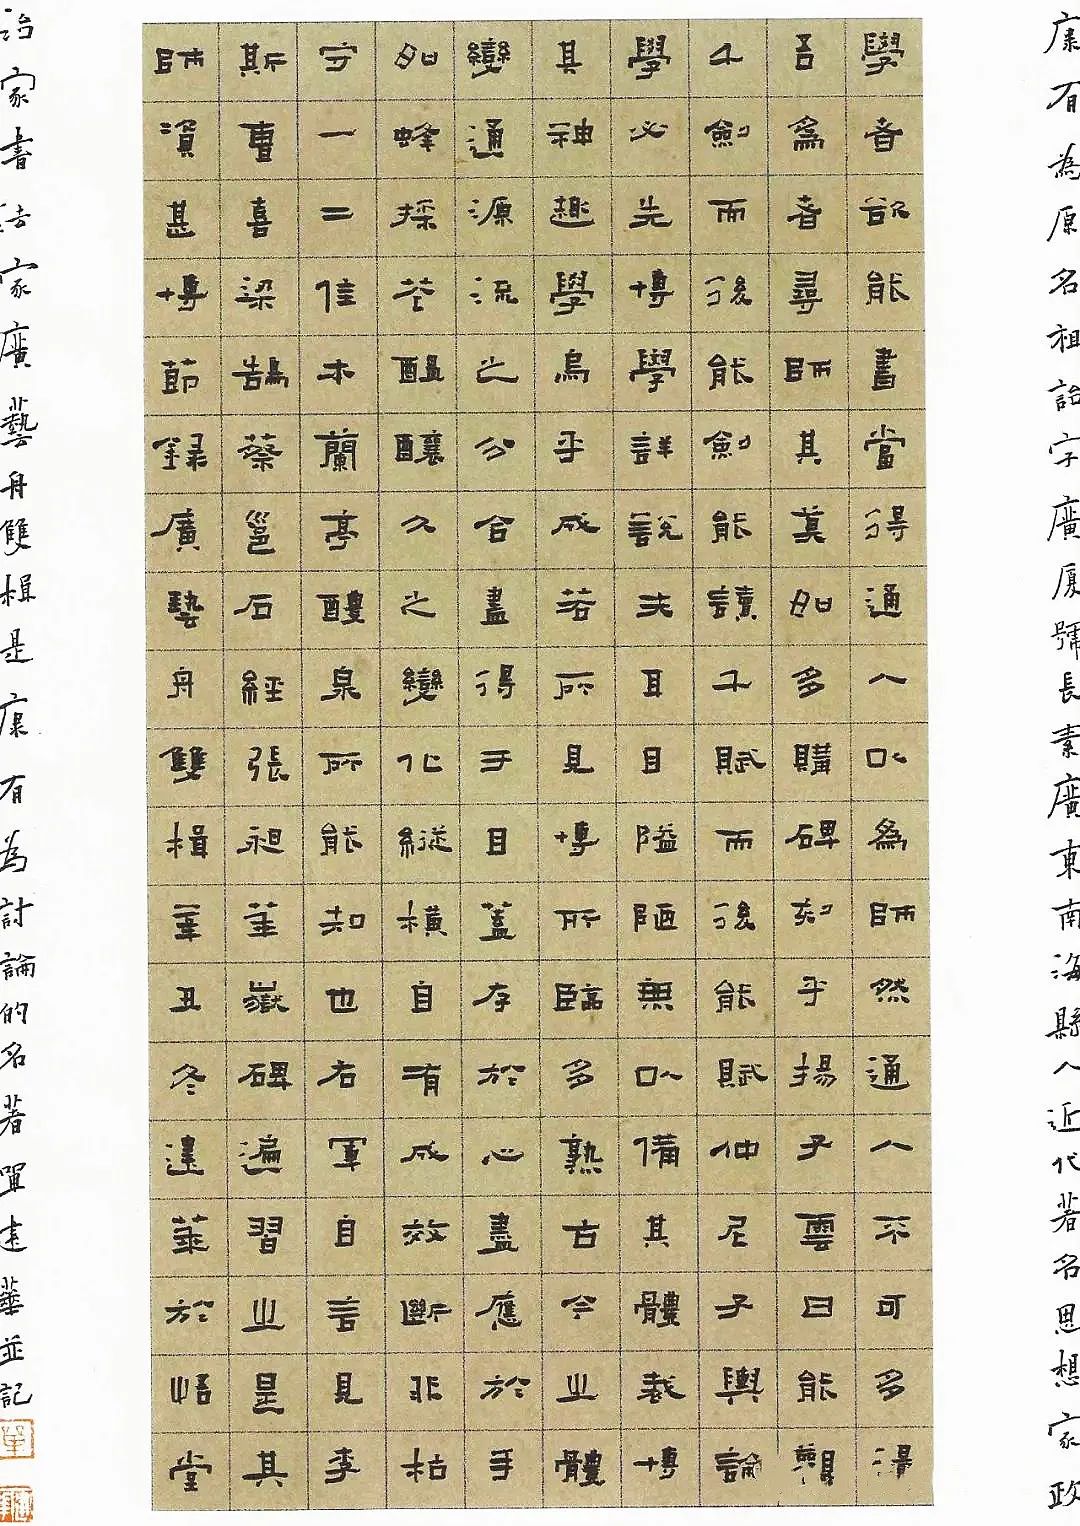 康有為原名祖詒字廣厦號長素廣東南海縣人近代著名思想家政
學者欲能書當得通人以爲師然通人不可多得
吾爲者尋師其莫如多購碑刻乎揚子雲曰能觀
千劍而後能劍能讀千賦而後能賦仲尼子輿論
學必先博學詳說夫耳目隘陋無以備其體裁博
其神趣學烏乎成若所見博所臨多熟古今之體
變通源流之分合盡得手目蓋存於心盡應於手
如蜂採花醞釀久之變化縱橫自有成效斷非枯
守一二佳本蘭亭醴泉所能知也右軍自言見李
斯曹喜梁鵠蔡邕石經張昶華嶽碑遍習之是其
師資甚博節錄廣藝舟雙楫辛丑冬逵華於悟堂
治家書法家廣藝舟雙楫是康有為討論的名著單逵華並記